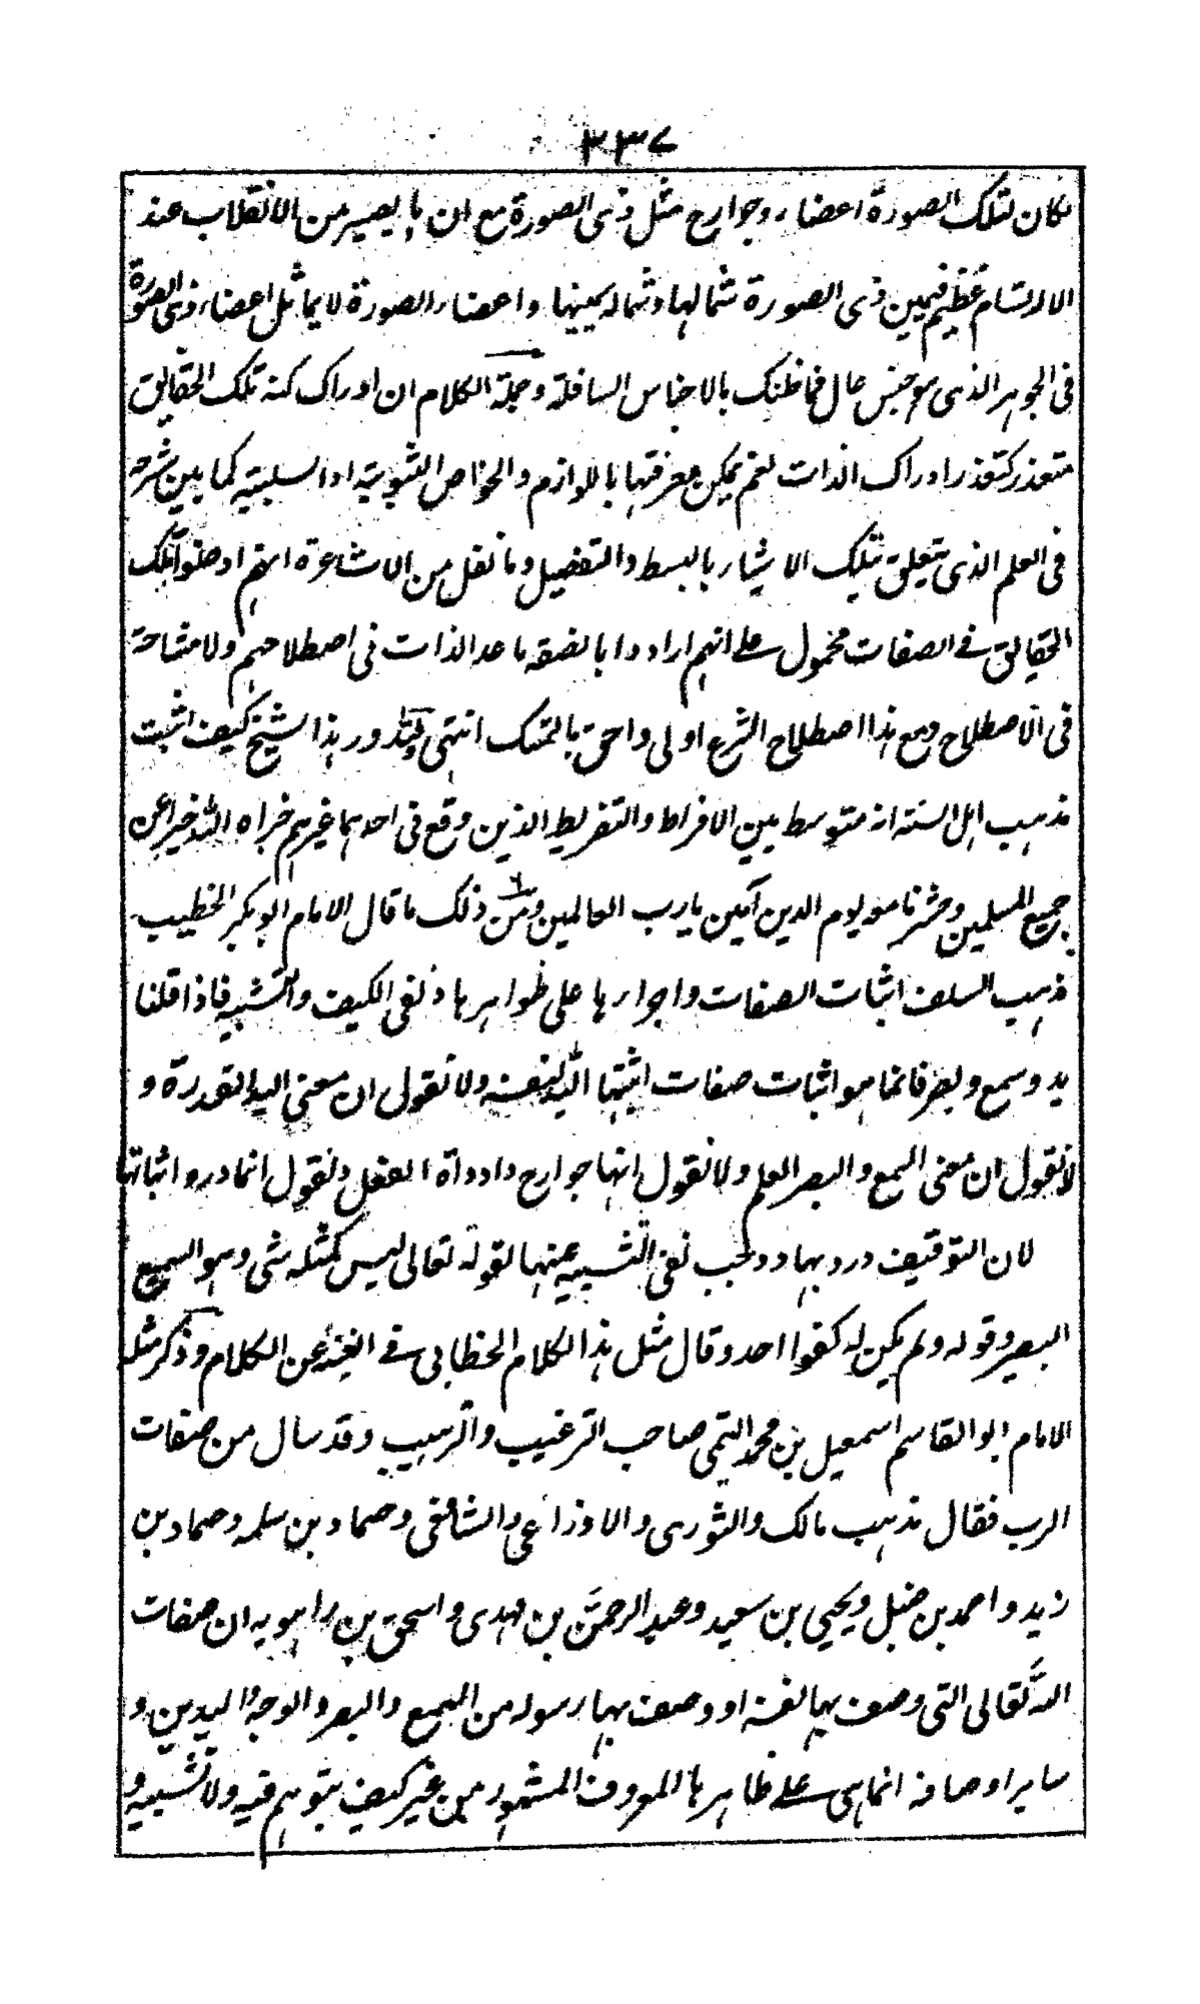 ٣٣٧
فكان لتلك الصورة اعضاء وجوارح مثل ذى الصورة مع ان ما يصير من الانقلاب عند
الارتسام عظيم فيمين ذى الصورة شمالها وشماله يمينها واعضاء الصورة لا يماثل اعضاء ذى الصورة
فى الجوهر الذى هو جنس عال فما ظنك بالاجناس السافلة وجملة الكلام ان ادراك كنه تلك الحقايق
متعذر كتعذر ادراك الذات نعم يمكن معرفتها باللوازم والخواص الثبوتية او السلبية كما بين شرحه
فى العلم الذى يتعلق بتلك الاشياء بالبسط والتفصيل وما نقل من الاشاعرة انهم ادخلوا تلك
الحقايق فى الصفات محمول على انهم ارادوا بالصفة ما عدا الذات فى اصطلاحهم ولا مشاحة
فى الاصطلاح ومع هذا اصطلاح الشرع اولى واحق بالتمسك انتهى ولله در هذا الشيخ كيف اثبت
مذهب اهل السنة انه متوسط بين الافراط والتفريط الذين وقع فى احدهما غيرهم جزاه الله خيرا عن
جميع المسلمين وحشرنا معه يوم الدين آمين يا رب العالمين ومن ذلك ما قال الامام ابو بكر الخطيب
مذهب السلف اثبات الصفات واجراءها على ظواهرها ونفى الكيف والتشبيه فاذا قلنا
يد وسمع وبصر فانما هو اثبات صفات اثبتها الله لنفسه ولا نقول ان معنى اليد القدرة و
لا نقول ان معنى السمع والبصر العلم ولا نقول انها جوارح وادواة الفعل ونقول انما درو اثباتها
لان التوقيف ورد بها ووجب نفى التشبيه عنها لقوله تعالى ليس كمثله شى وهو السميع
البصير وقوله ولم يكن له كفوا احد وقال مثل هذا الكلام الخطابى فى الغنية عن الكلام وذكر مثله
الامام ابو القاسم اسمعيل بن محمد التيمى صاحب الترغيب والترهيب وقد سال من صفات
الرب فقال مذهب مالك والثورى والاوزاعى والشافعى وحماد بن سلمه وحماد بن
زيد واحمد بن حنبل ويحيى بن سعيد وعبد الرحمن بن مهدى واسحق بن راهويه ان صفات
الله تعالى التى وصف بها نفسه او وصف بها رسوله من السمع والبصر والوجه واليدين و
ساير اوصافه انما هى على ظاهرها المعروف المشهور من غير كيف يتوهم فيه ولا تشبيه و